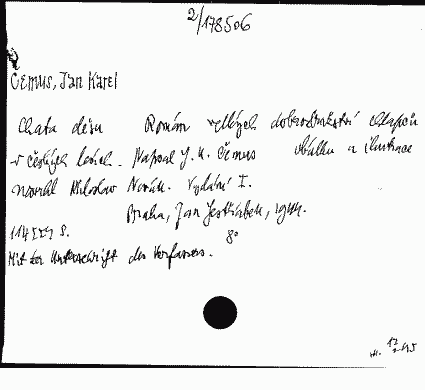 2/178506
Čemus, Jan Karel
Chata děsu Román velkých dobrodružství chlapců
v českých lesích. Napsal J. K. Čemus obálku a ilustrace
navrhl Miloslav Novák. Vydání I.
Praha, Jan Jestřábek, 1944.
114 S.
8°
Mit der Unterschrift des Verfassers.